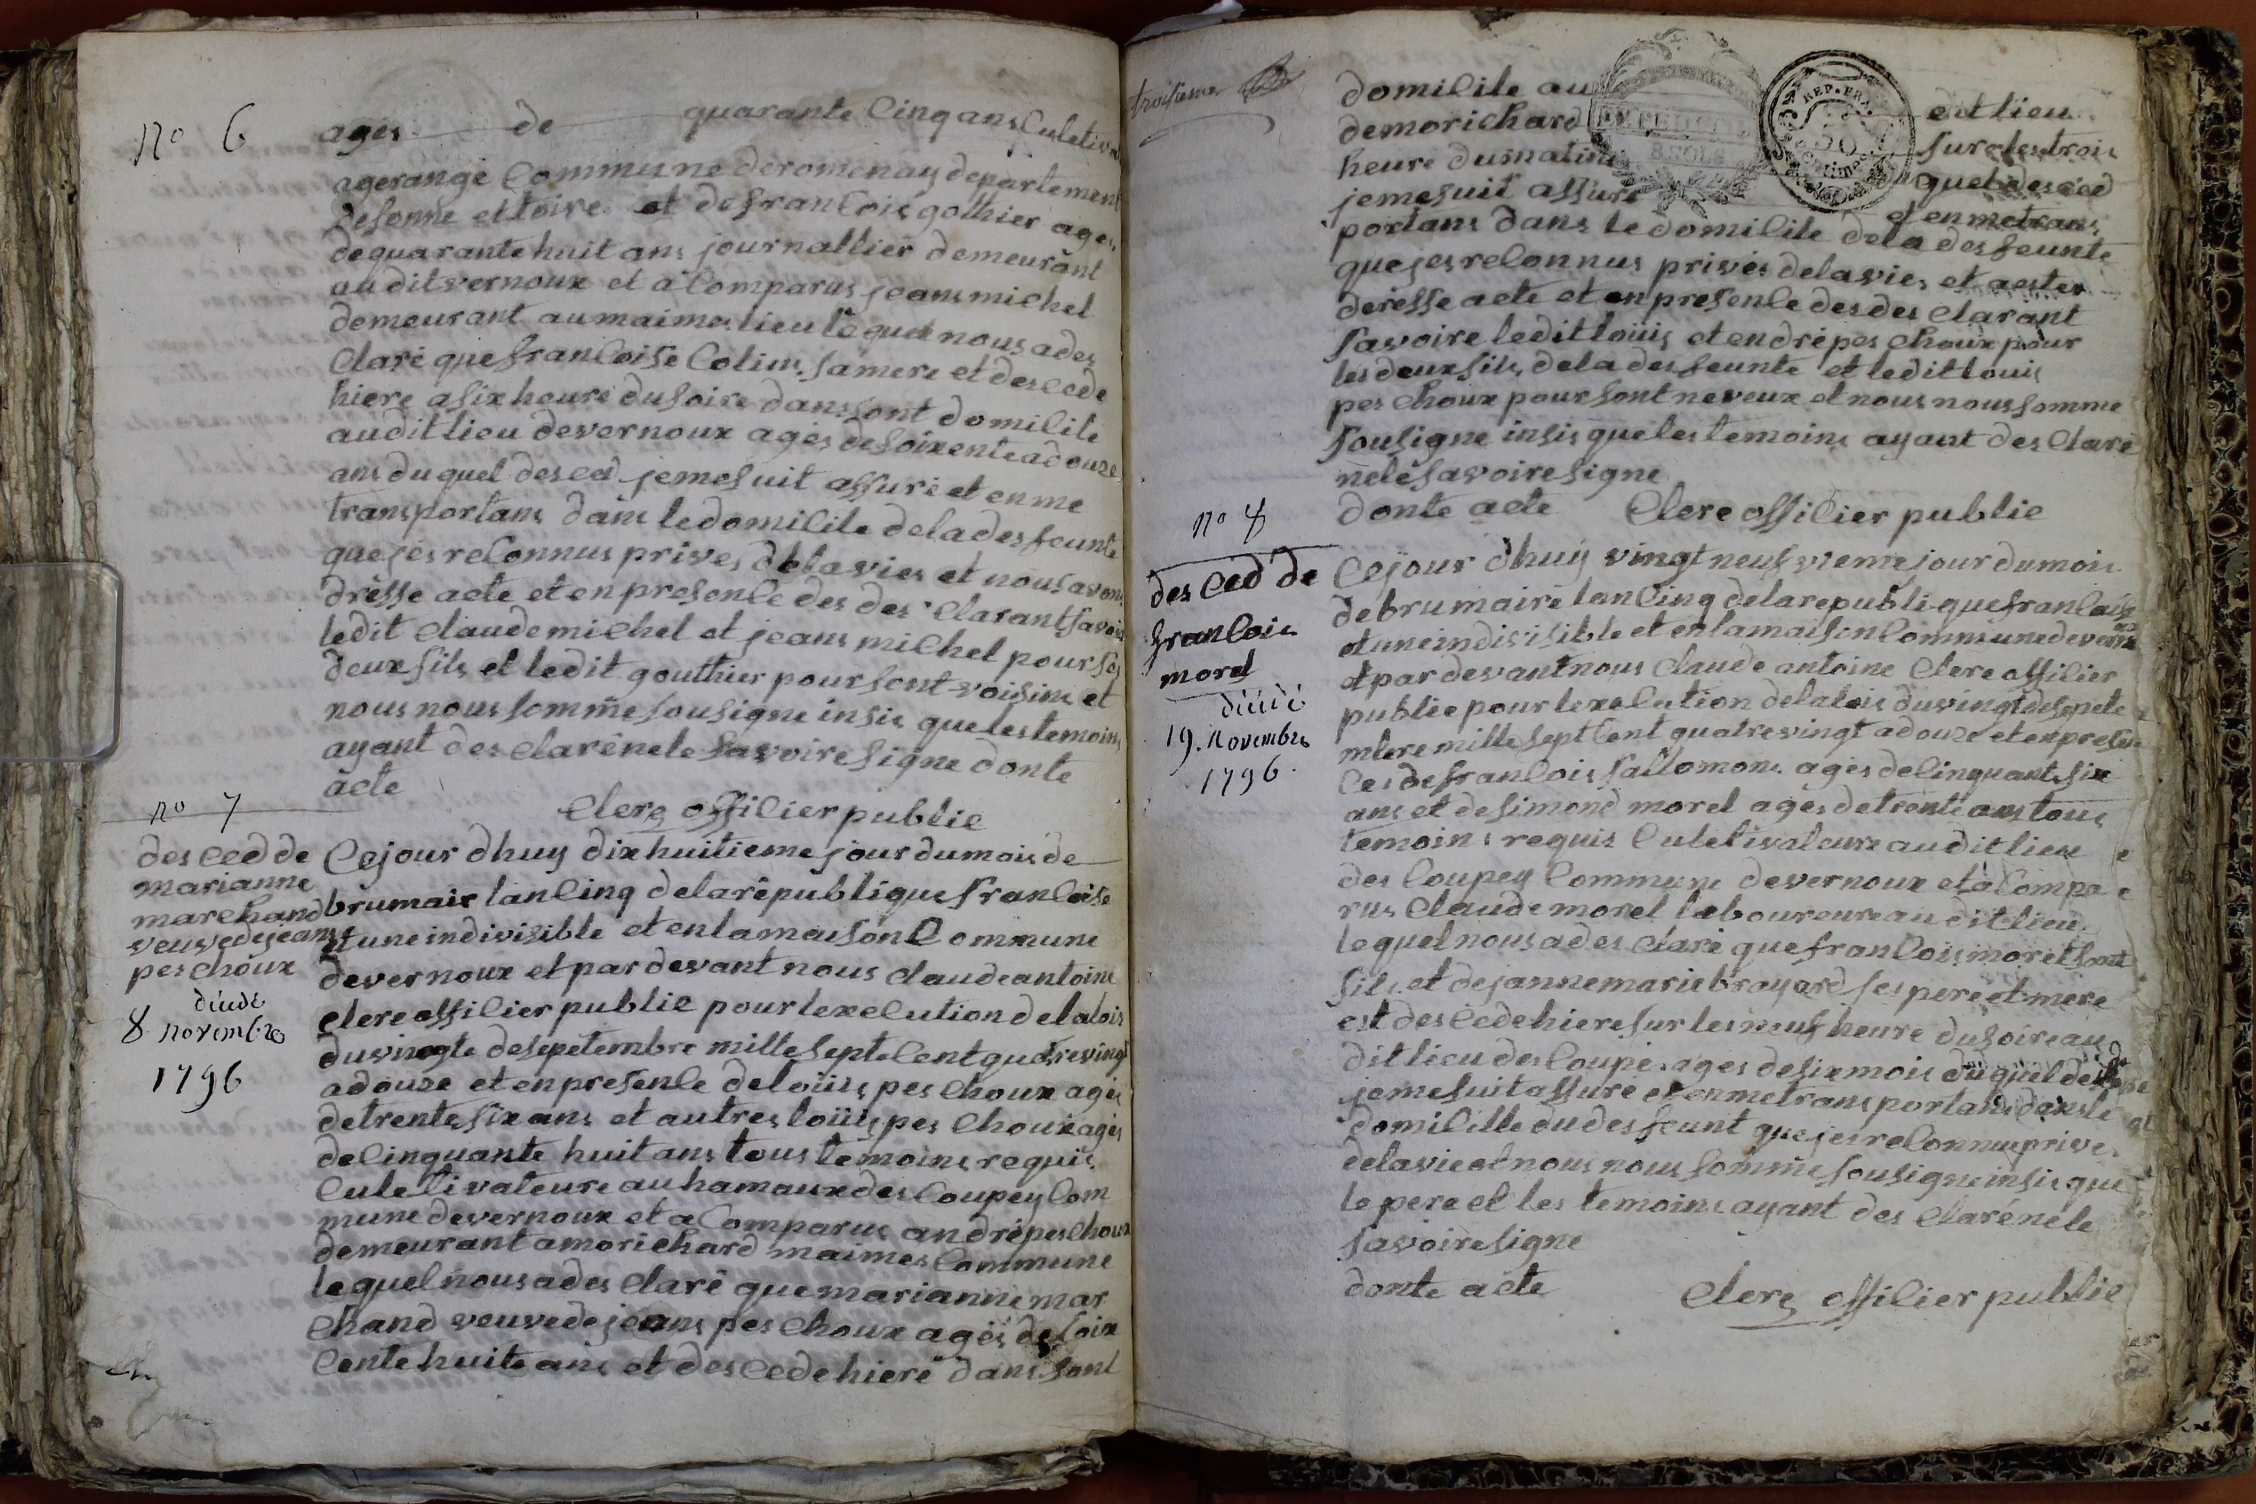 no 6
ages de quarante Cinq ans Culetiva
agerange Commune deromenay departement
desonne ettoire et defranCois gothier ages
dequarantehuit ans journallier demeurant
audit vernoux et àComparus jeans michel
demeurant aumaimes lieu lequel nousades
Claré que franCoise Colins samere et desCede
hiere asix heure dusoire dans sont domiCile
audit lieu devernoux agés desoixenteadouze
ans duquel desCed jemesuit assuré et enme
transportans dans ledomiCile deladesfeunte
quejesreConnus prives delavies et nousavons
drésse acte et enpresenCe des des Clarant savoir
ledit Claudemichel et jeans michel pourses
deuxfils et ledit gouthier poursont voisins et
nous nous sommé sousigne insis quelestemoins
ayant des Clarénete savoiresigne donte
acte
Clerc offiCier publiC
no 7
desCed de
marianne
marchand
veuvedejeans
peschoux
décédé
8 novembre
1796
Cejour dhuy dixhuitieme jour dumoisde
brumair lanCinq delarépublique franCoise
etuneindivisible et enlamaisonCommune
devernoux et pardevant nous Claudeantoine
clerc offiCier publiC pour lexeCution delalois
duvingte desepetembre millesepteCentquatrevingt
adouze et enpresenCe deloüis pesChoux agés
detrentesixans et autres loüis pesChoux agés
deCinquante huit ans tous temoins requis
Culetivateure auhamauxdesCoupey Com
mune devernoux et aComparus andrépesChoux
demeurant amorichard maimes Commune
lequel nousades Claré quemariannemar
chand veuvedejeans pesChoux agés desoix
Cente huiteans et desCedehiere dans sont
troisieme
domiCile au dit lieu
demorichard surelestrois
heure dumatin duquel desCed
jemesuit assuré et enmetrans
portans dans ledomiCile dela desfeunte
quejesreConnus privés delavies et aester
derésse acte et enpresenCe desdesClarant
savoire leditloüis et endrépesChoux pour
lesdeuxfils deladesfeunte et leditlouis
pesChoux poursont neveux et nous nous somme
sousigne insis que les temoins ayant desClaré
neté savoiresigne
donte acte Clerc offiCier publiC
no 8
desCed de
franCois
morel
décédé
19. novembre
1796.
Cejour dhuy vingt neufvieme jour dumois
debrumairé lanCinq delarepublique franCaise
etuneindisisible et enlamaisonCommunedevernoux
et par devant nous Claude antoine Clerc offiCier
publiC pour lexeCution delalois duvingtdesepete
mbere mille septCent quatrevingt adouze et enpresen
Ces defranCois sallomons agés deCinquantesix
ans et desimond morel agés detrente ans tous
temoins requis Culetivateure audit lieu
desCoupey Commune devernoux età Compa
rus Claude morel laboureure au dit lieu
lequel nousades Claré quefranCois morel sont
fils et dejannemariebrayard ses pere et mere
est desCedehiere sur lesneuf heure dusoire au
dit lieu desCoupés ages desixmois duquel desCed
jemesuit assuré et enmetransportans dansle
domiCille dudesfeunt quejesreConnus prives
delavie et nous nous sommé sousigneinsis que
le pere et les temoins ayant desClarénete
savoiresigne
donte acte Clerc offiCier publiC